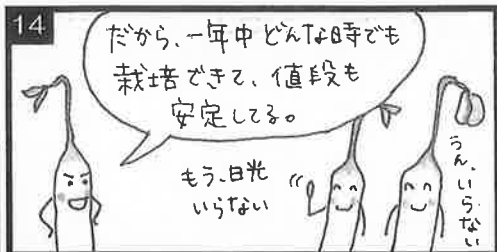 14
だから、一年中どんな時でも
栽培できて、値段も
安定してる。
もう、日光
いらない
うん、いらない